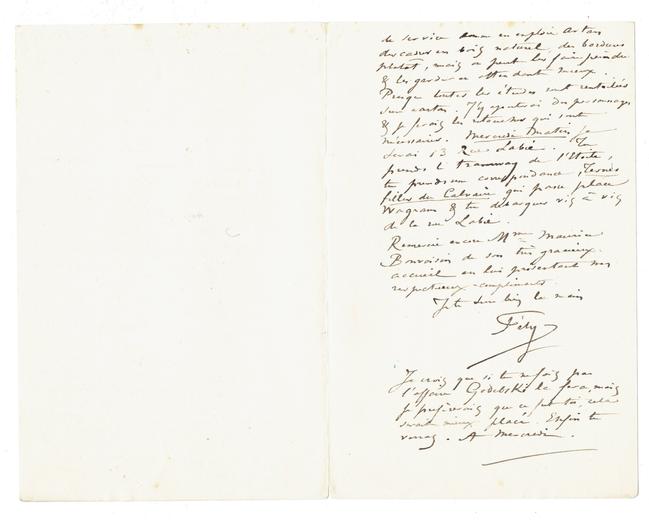 de service comme en emploie Artan
des cadres en bois naturel, des bordures
plutôt, mais on peut les faire peindre
& les garder en attendant mieux.
Presque toutes les études sont rentoilées
sur carton. J'y ajouterai des personnages
& je ferai les retouches qui sont
nécessaires. Mercredi matin je
serai 13 Rue Labie. Tu
prends le tramway de l'Etoile,
tu prends une correspondance, Ternes
filles du Calvaire qui passe place
Wagram & tu débarques vis à vis
de la rue Labie.
Remercie encore Mme Maurice
Bonvoisin de son très gracieux
accueil en lui présentant mes
respectueux compliments.
Je te serre bien la main
Fély
Je crois que si tu ne fais pas
l'affaire Godebski la fera, mais
je préfèrerais que ce fut toi, cela
serait mieux placé. Enfin tu
verras. A Mercredi.